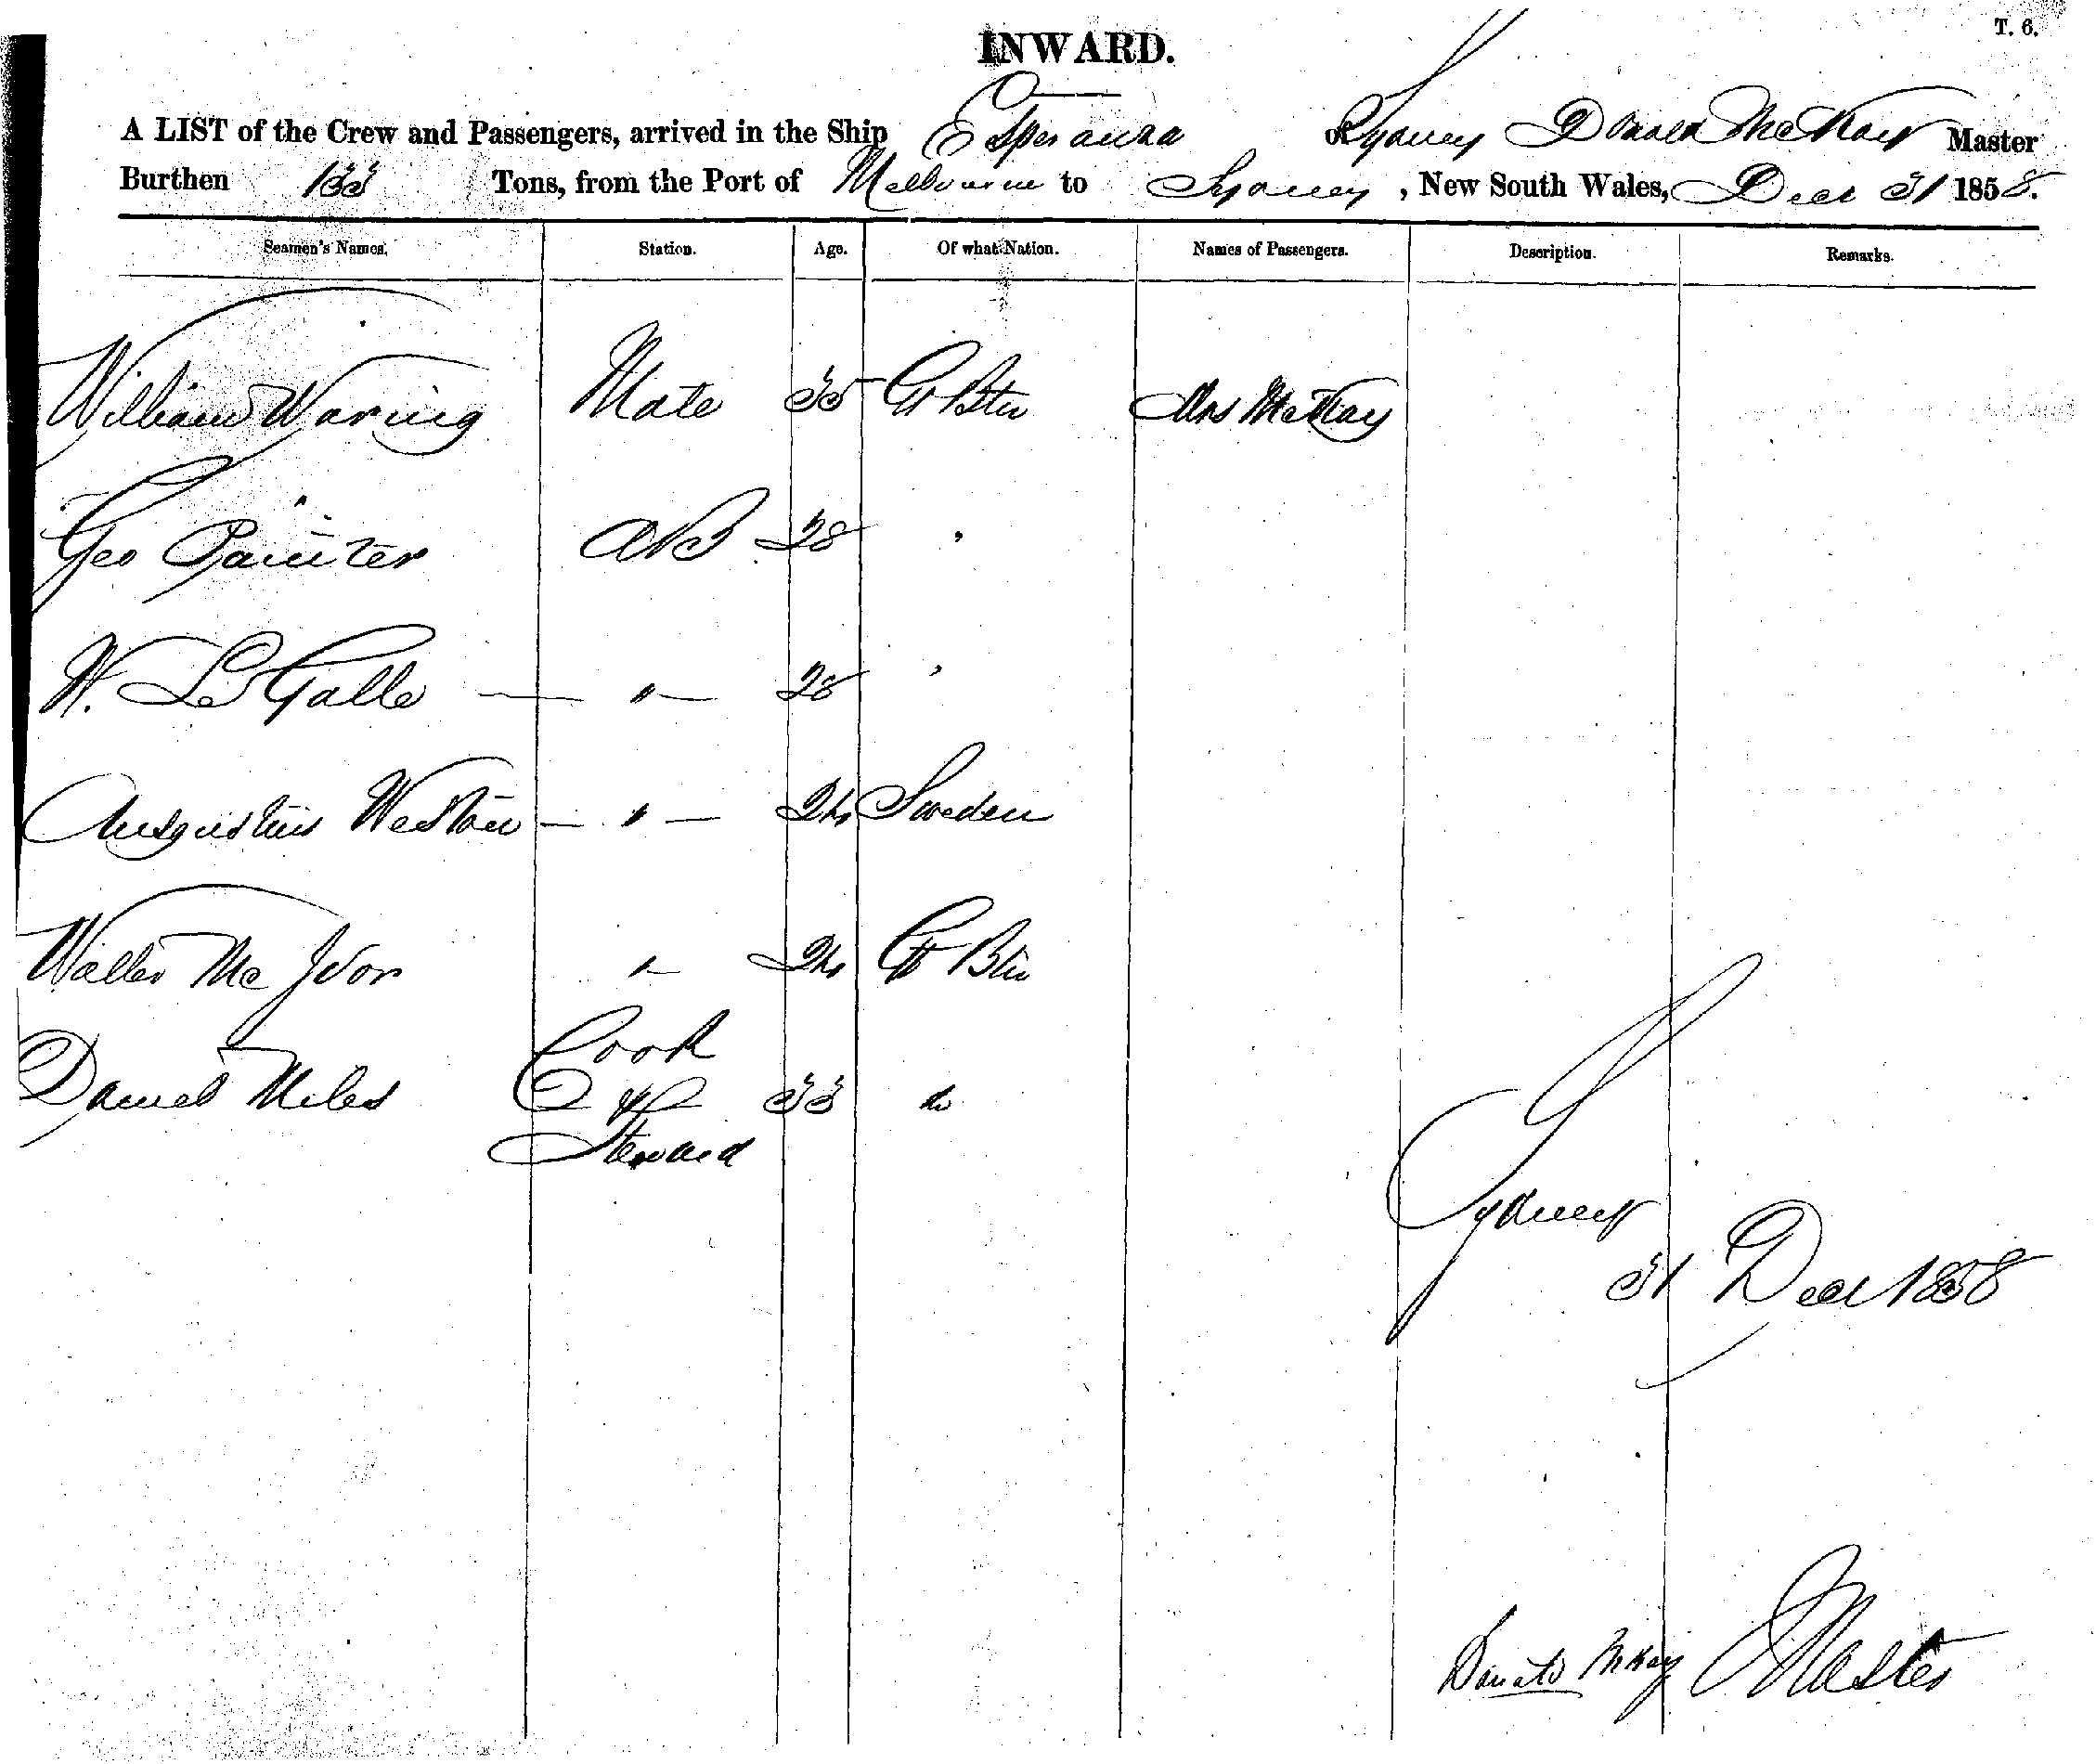 T. 6.
INWARD.
A LIST of the Crew and Passengers, arrived in the Ship Esperanza of Sydney Donald McKay Master
Burthen 133 Tons, from the Port of Melbourne to Sydney, New South Wales, Decr 31 1858.
Seamen's Names. Station. Age. Of what Nation. Names of Passengers. Description. Remarks.
William Waring Mate 35 Gt Btn Mrs McKay
Geo Painter AB 28 "
W. Le Galle — " — 28 "
Augustus — " — 24 Sweden
Walter McIvor " — 24 Gt Btn
Daniel Miles Cook & Steward 33 Do
Sydney
31 Decr 1858
Donald McKay Master